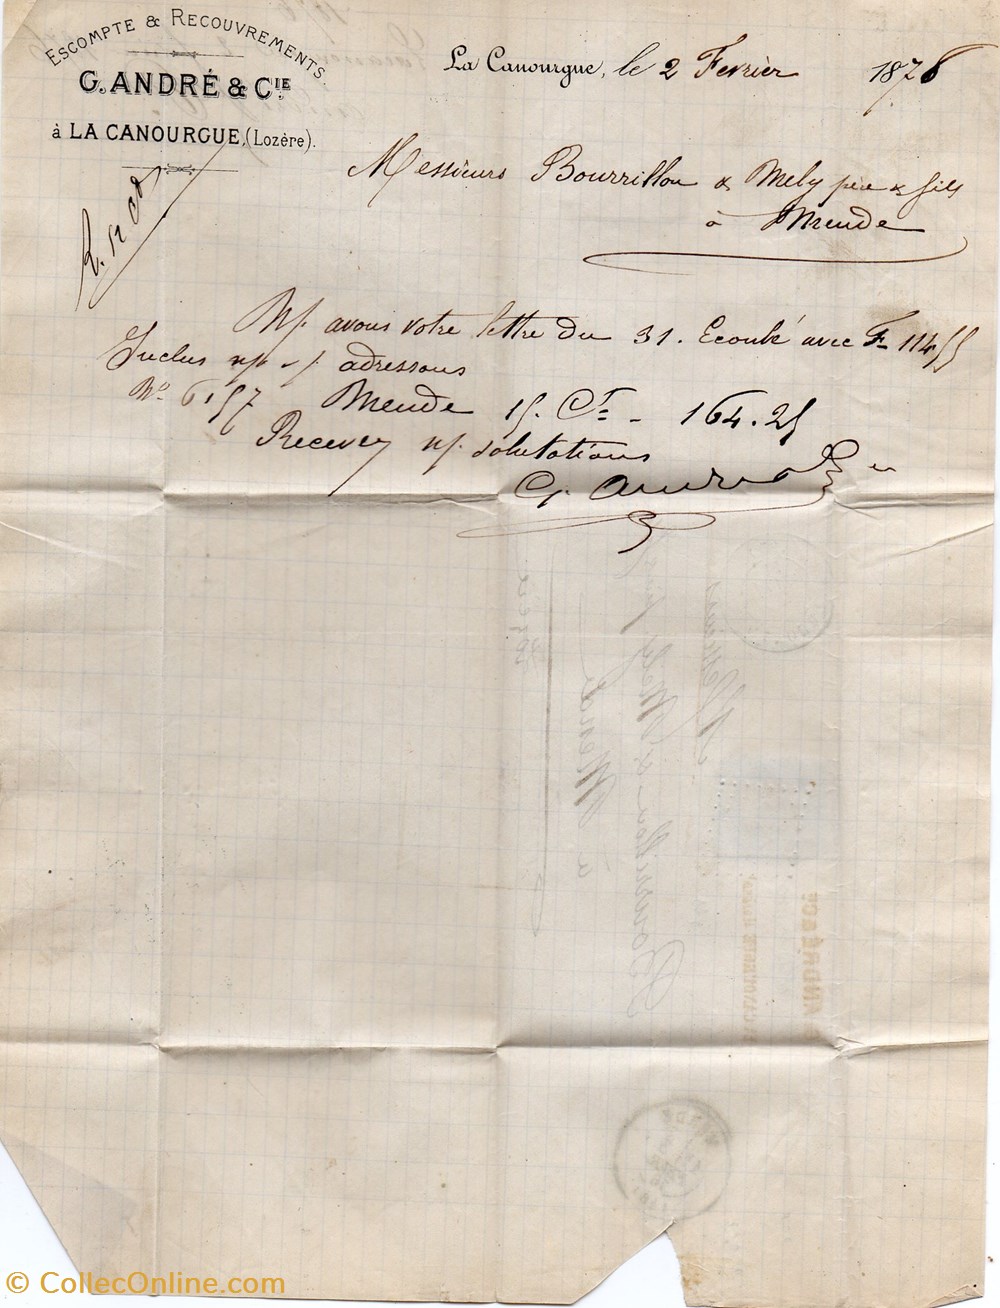 ESCOMPTE & RECOUVREMENTS
G. ANDRÉ & CIE
à LA CANOURGUE, (Lozère).
La Canourgue, le 2 Fevrier 1876
Messieurs Bourrillon & Mely père & fils
à Mende
N/. avons votre lettre du 31. Ecoulé avec F 114 55
Inclus n/ adressons
No. 6157 Mende 15. Ct - 164.25
Recevez n/. salutations
G. André
© CollecOnline.com